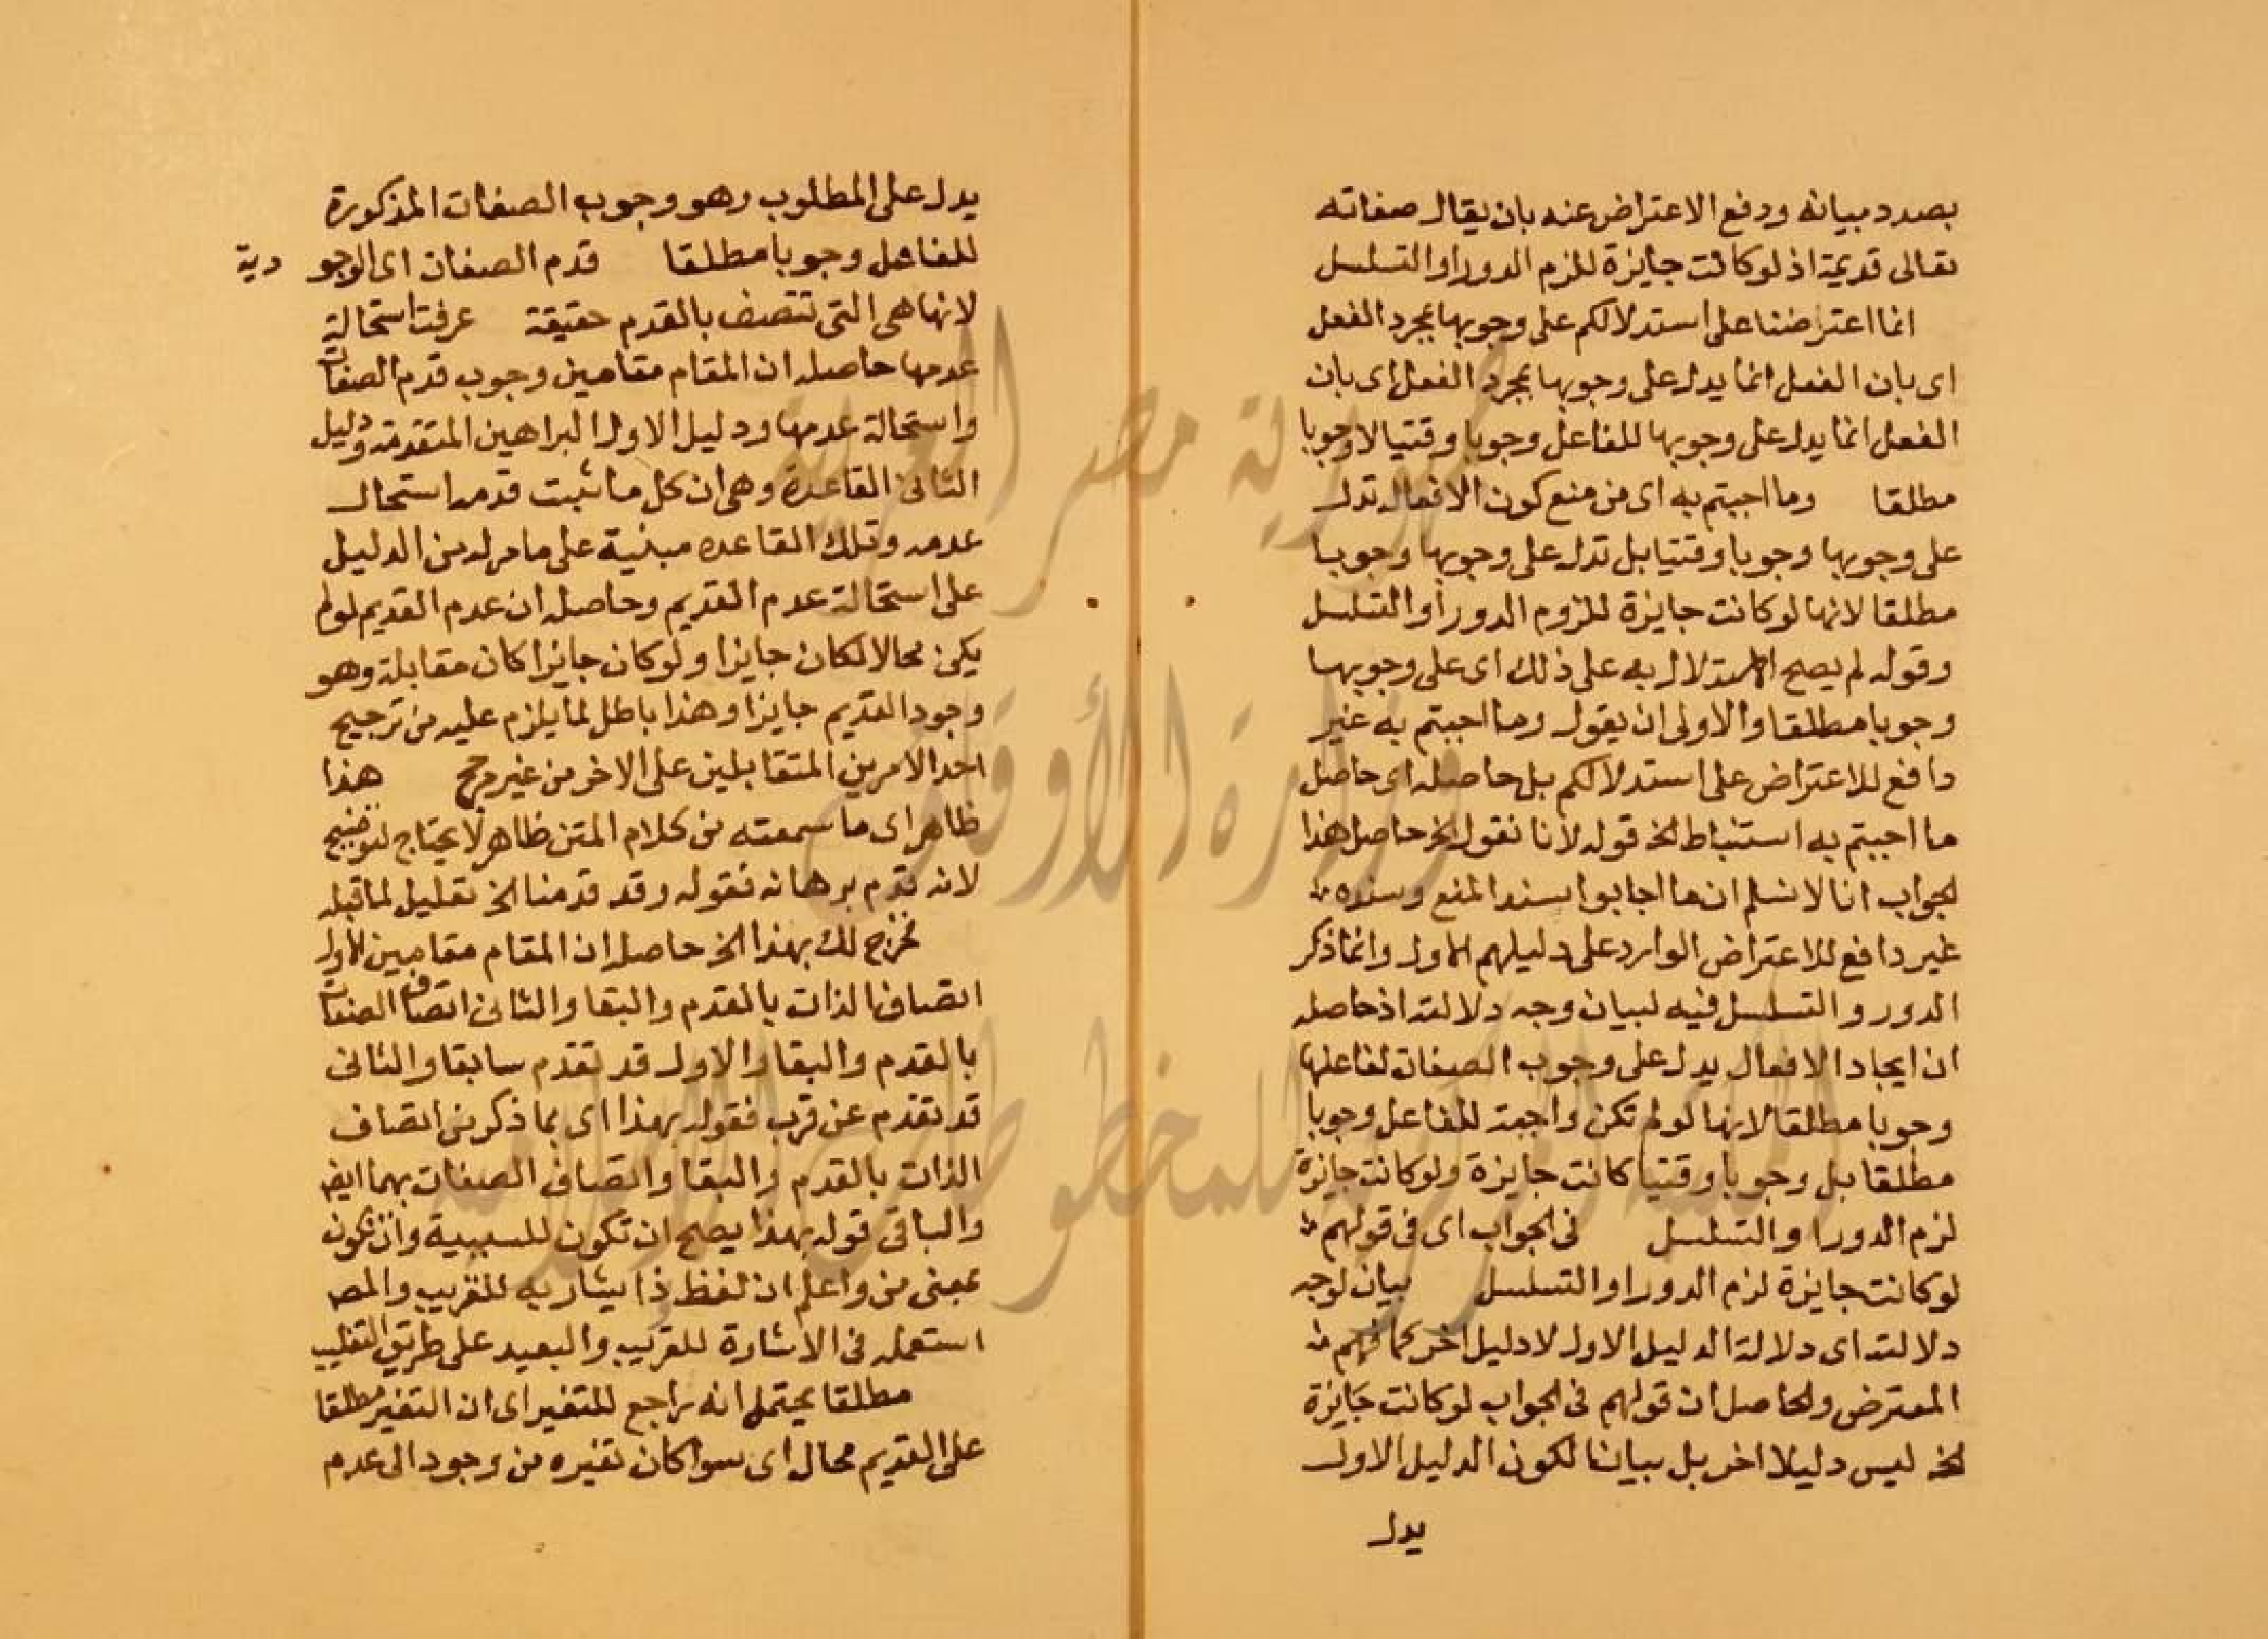 بصدد بيانه ودفع الاعتراض عنه بان يقال صفاته
تعالى قديمة اذ لو كانت جايزة للزم الدور او التسلسل
انما اعتراضنا على استدلالكم على وجوبها بمجرد الفعل
اى بان الفعل انما يدل على وجوبها بمجرد الفعل اى بان
الفعل انما يدل على وجوبها للفاعل وجوبا وقتيا لا وجوبا
مطلقا وما اجبتم به اى من منع كون الافعال تدل
على وجوبها وجوبا وقتيا بل تدل على وجوبها وجوبا
مطلقا لانها لو كانت جايزة للزوم الدور او التسلسل
وقوله لم يصح الاستدلال به على ذلك اى على وجوبها
وجوبا مطلقا والاولى ان يقول وما اجبتم به غير
دافع للاعتراض على استدلالكم بل حاصله اى حاصل
ما اجبتم به استنباط الخ قوله لانا نقول الخ حاصل هذا
لجواب انا لا نسلم ان ما اجابوا بسند المنع وسنده
غير دافع للاعتراض الوارد على دليلهم الاول وانما ذكر
الدور والتسلسل فيه لبيان وجه دلالته اذ حاصله
ان ايجاد الافعال يدل على وجوب الصفات لفاعلها
وجوبا مطلقا لانها لو لم تكن واجبة للفاعل وجوبا
مطلقا بل وجوبا وقتيا كانت جايزة ولو كانت جايزة
لزم الدور او التسلسل فى لجواب اى فى قولهم
لو كانت جايزة لزم الدور او التسلسل بيان لوجه
دلالته اى دلالة الدليل الاول لا دليل اخر كما فهم
المعترض ولحاصل ان قولهم فى لجواب لو كانت جايزة
لخ ليس دليلا اخر بل بيانا لكون الدليل الاول
يدل
يدل على المطلوب وهو وجوب الصفات المذكورة
للفاعل وجوبا مطلقا قدم الصفات اى الوجو دية
لانها هى التى تتصف بالقدم حقيقة عرفت استحالة
عدمها حاصله ان المقام مقامين وجوب قدم الصفات
واستحالة عدمها ودليل الاول البراهين المتقدمة ودليل
الثانى القاعدة وهى ان كل ما ثبت قدمه استحال
عدمه وتلك القاعده مبنية على ما مر له من الدليل
على استحالة عدم القديم وحاصله ان عدم القديم لو لم
يكن محالا لكان جايزا ولو كان جايزا كان مقابله وهو
وجود القديم جايزا وهذا باطل لما يلزم عليه من ترجيح
احد الامرين المتقابلين على الاخر من غير مرجح هذا
ظاهر اى ما سمعته من كلام المتن ظاهر لا يحتاج لتوضيح
لانه تقدم برهانه فقوله وقد قدمنا الخ تعليل لما قبله
نخرج لك بهذا الخ حاصله ان المقام مقامين الاول
اتصاف الذات بالقدم والبقا والثانى اتصاف الصفات
بالقدم والبقا والاول قد تقدم سابقا والثانى
قد تقدم عن قرب فقوله بهذا اى بما ذكر من اتصاف
الذات بالقدم والبقا واتصاف الصفات بهما ايض
والباقى قوله بهذا يصح ان تكون للسببية وان تكون
بمعنى من واعلم ان لفظ ذا يشار به للقريب والمص
استعمله فى الاشارة للقريب والبعيد على طريق التغليب
مطلقا يحتمل انه راجع للتغير اى ان التغير مطلقا
على القديم محال اى سوا كان تغيره من وجود الى عدم